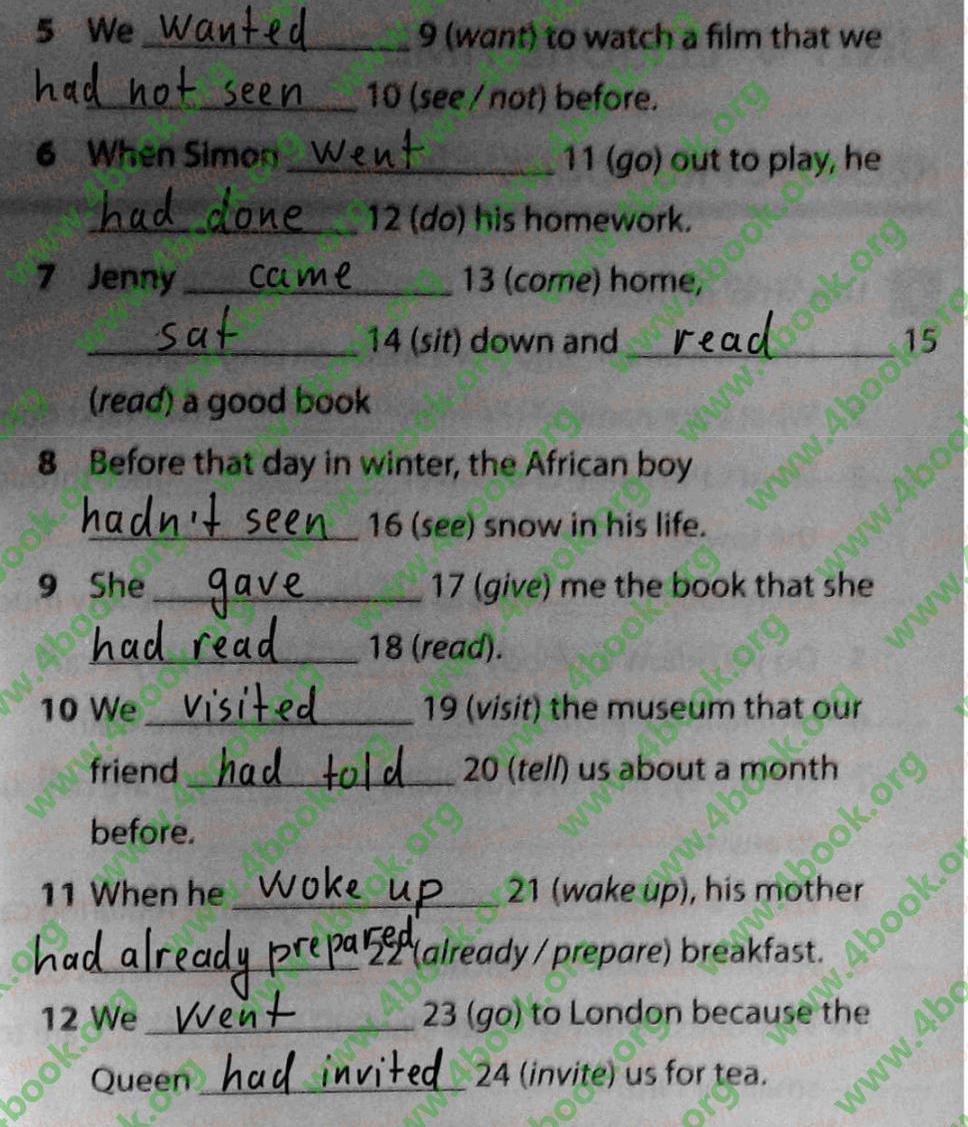 5 We wanted 9 (want) to watch a film that we
had not seen 10 (see / not) before.
6 When Simon went 11 (go) out to play, he
had done 12 (do) his homework.
7 Jenny came 13 (come) home,
sat 14 (sit) down and read 15
(read) a good book
8 Before that day in winter, the African boy
hadn't seen 16 (see) snow in his life.
9 She gave 17 (give) me the book that she
had read 18 (read).
10 We visited 19 (visit) the museum that our
friend had told 20 (tell) us about a month
before.
11 When he woke up 21 (wake up), his mother
had already prepared 22 (already / prepare) breakfast.
12 We went 23 (go) to London because the
Queen had invited 24 (invite) us for tea.
www.4book.org